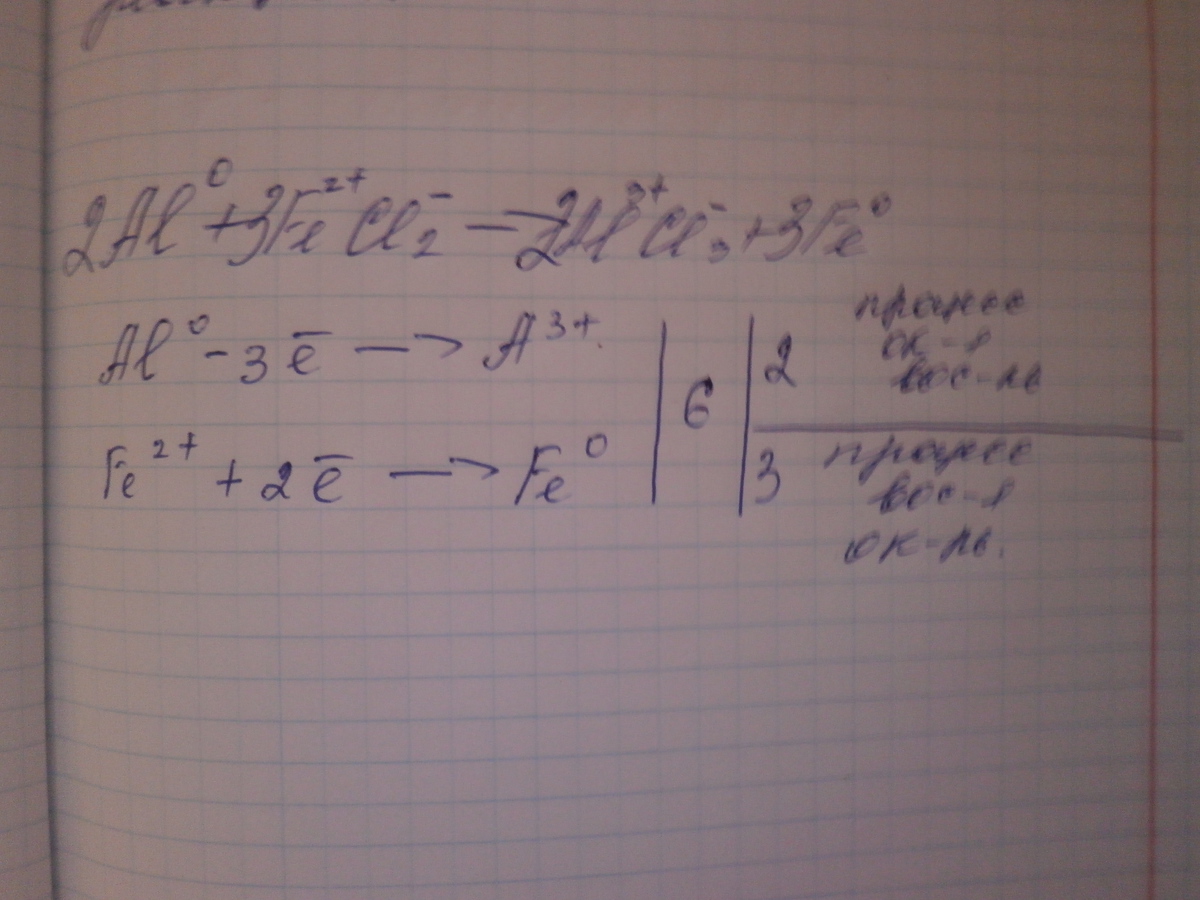 2Al⁰ + 3Fe²⁺Cl₂⁻ → 2Al³⁺Cl₃⁻ + 3Fe⁰
Al⁰ - 3ē → A³⁺. | 6 | 2 процесс
ок-я
вос-ль
Fe²⁺ + 2ē → Fe⁰ 3 процесс
вос-я
ок-ль.